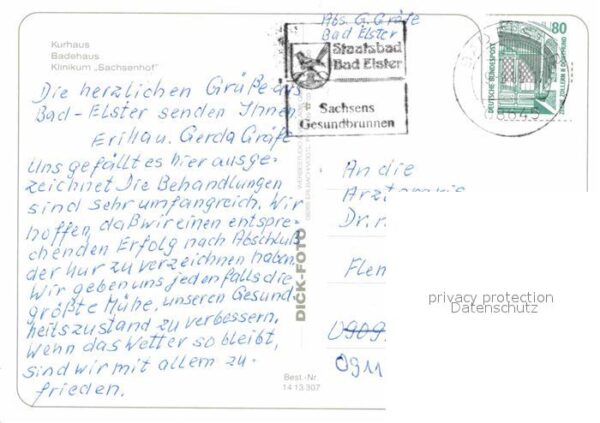 Kurhaus
Badehaus
Klinikum „Sachsenhof"
Die herzlichen Grüße aus
Bad-Elster senden Ihnen
Gerda Gräfe
Uns gefällt es hier ausge-
zeichnet Die Behandlungen
sind sehr umfangreich. Wir
hoffen, daß wir einen entspre-
chenden Erfolg nach Abschluß
der Kur zu verzeichnen haben.
Wir geben uns jedenfalls die
größte Mühe, unseren Gesund-
heitszustand zu verbessern.
Wenn das Wetter so bleibt,
sind wir mit allem zu-
frieden.
Abs. G. Gräfe
Bad Elster
Staatsbad
Bad Elster
Sachsens
Gesundbrunnen
80
DEUTSCHE BUNDESPOST
08645
DICK-FOTO
Best.-Nr.
14 13.307
An die
Dr.
Flen
0909
0911
privacy protection
Datenschutz